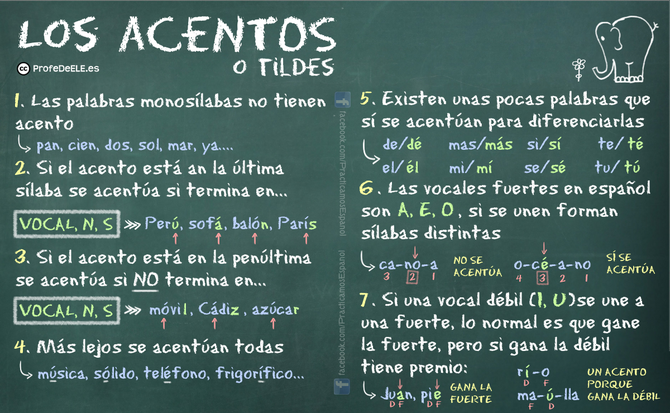 LOS ACENTOS
O TILDES
cc ProfeDeELE.es
1. Las palabras monosílabas no tienen
acento
pan, cien, dos, sol, mar, ya....
2. Si el acento está an la última
sílaba se acentúa si termina en...
VOCAL, N, S >>> Perú, sofá, balón, París
3. Si el acento está en la penúltima
se acentúa si NO termina en...
VOCAL, N, S >>> móvil, Cádiz, azúcar
4. Más lejos se acentúan todas
música, sólido, teléfono, frigorífico...
facebook.com/PracticamosEspanol
facebook.com/PracticamosEspanol
5. Existen unas pocas palabras que
sí se acentúan para diferenciarlas
de/dé mas/más si/sí te/té
el/él mi/mí se/sé tu/tú
6. Las vocales fuertes en español
son A, E, O, si se unen forman
sílabas distintas
ca-no-a NO SE o-cé-a-no SÍ SE
3 2 1 ACENTÚA 4 3 2 1 ACENTÚA
7. Si una vocal débil (I, U)se une a
una fuerte, lo normal es que gane
la fuerte, pero si gana la débil
tiene premio:
Juan, pie GANA LA FUERTE
D F D F
rí-o UN ACENTO
D F PORQUE
ma-ú-lla GANA LA DÉBIL
F D